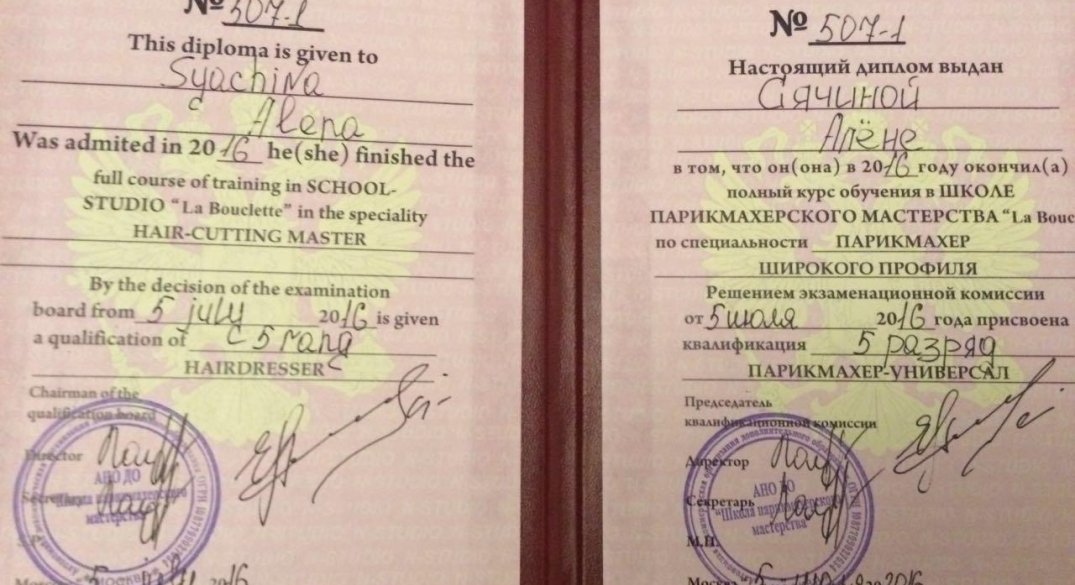 № 507-1
This diploma is given to
Syachina
Alena
Was admited in 2016 he(she) finished the
full course of training in SCHOOL-
STUDIO “La Bouclette” in the speciality
HAIR-CUTTING MASTER
By the decision of the examination
board from 5 july 2016 is given
a qualification of 5 rang
HAIRDRESSER
Chairman of the
qualification board
Director
Secretary
АНО ДО
"Школа парикмахерского
мастерства"
МОСКВА
5 july 2016
№ 507-1
Настоящий диплом выдан
Сячиной
Алёне
в том, что он(она) в 2016 году окончил(а)
полный курс обучения в ШКОЛЕ
ПАРИКМАХЕРСКОГО МАСТЕРСТВА “La Bouc
по специальности ПАРИКМАХЕР
ШИРОКОГО ПРОФИЛЯ
Решением экзаменационной комиссии
от 5 июля 2016 года присвоена
квалификация 5 разряд
ПАРИКМАХЕР-УНИВЕРСАЛ
Председатель
квалификационной комиссии
Директор
Секретарь
М.П.
АНО ДО
"Школа парикмахерского
мастерства"
Москва 5 июля 2016